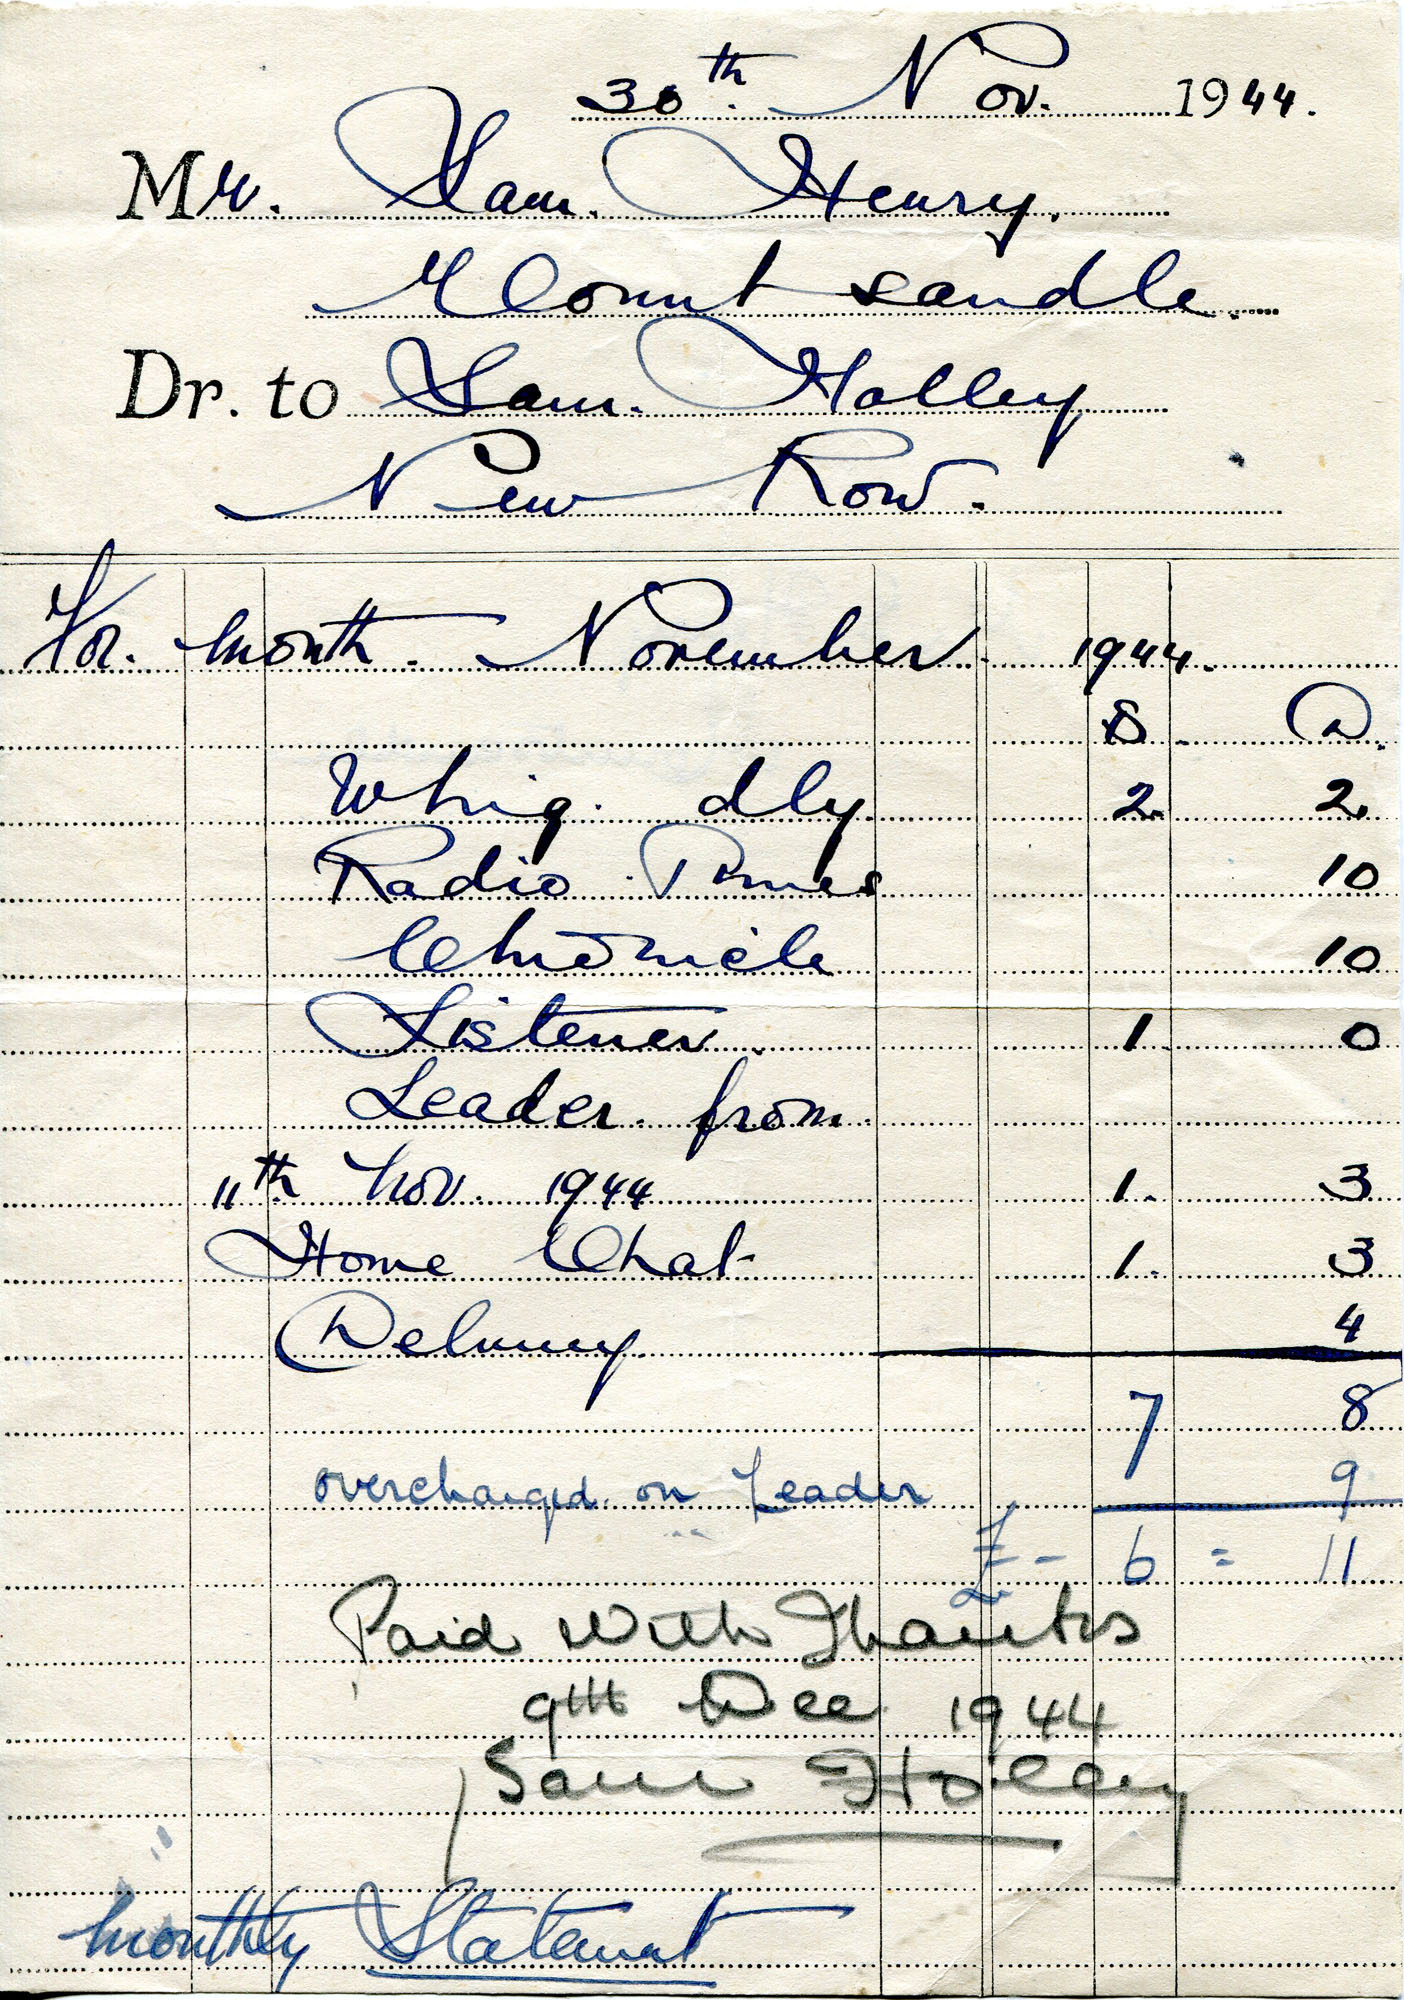 30th. Nov. 1944.
Mr. Sam. Henry.
Mount sandle.
Dr. to Sam. Holley
New Row.
For. month. November. 1944.
S. D.
Whig. dly. 2. 2.
Radio Times 10
Chronicle 10
Listener. 1. 0
Leader. from.
11th Nov. 1944 1. 3
Home Chat 1. 3
Delivery. 4
7 8
overcharged. on Leader 9
£ - 6 = 11
Paid With Thanks
9th Dec 1944
Sam Holley
Monthly Statement